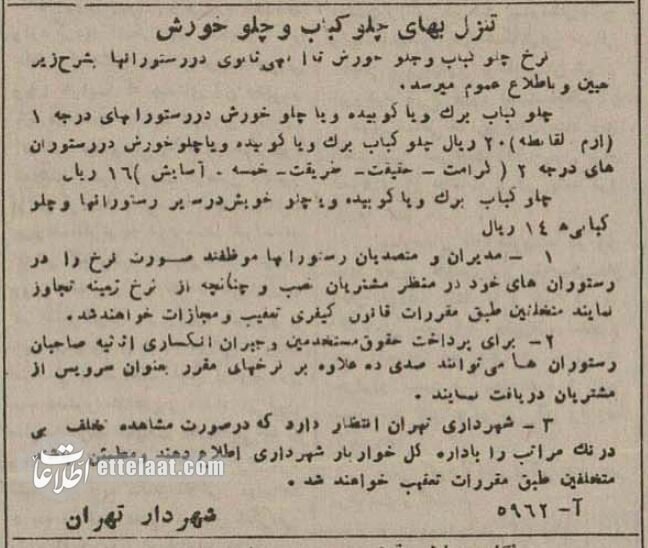 تنزل بهای چلو کباب و چلو خورش
نرخ چلو کباب وچلو خورش تا ثانوی دررستورانها بشرح زیر
و باطلاع عموم میرسد.
چلو کباب برك و یا کوبیده ویا چلو خورش دررستورانهای درجه ۱
لقانطه) ۲۰ ریال چلو کباب برك ویا کوبیده ویاچلوخورش دررستوران
های درجه ۲ ( کرامت ـ حقیقت ـ طریقت ـ خمسه ـ آسایش )۱۶ ریال
چلو کباب برك ویاکوبیده ویاچلو خورش درسایر رستورانها وچلو
کبابی‌ها ۱۴ ریال
۱ ـ مدیران و متصدیان رستورانها موظفند صورت نرخ را در
رستوران های خود در منظر مشتریان نصب و چنانچه از نرخ تجاوز
نمایند متخلفین طبق مقررات قانون کیفری تعقیب و مجازات خواهندشد.
۲ـ برای پرداخت حقوق مستخدمین وجبران انکساری اثاثیه صاحبان
رستوران ها می‌توانند صدی ده علاوه بر نرخهای مقرر بعنوان سرویس از
مشتریان دریافت نمایند .
۳ ـ شهرداری تهران انتظار دارد که درصورت مشاهده تخلف بی
درنك مراتب را باداره کل خواربار شهرداری اطلاع دهند
متخلفین طبق مقررات تعقیب خواهند شد .
آـ ۵۹۶۲
شهردار تهران
اطلاعات ettelaat.com